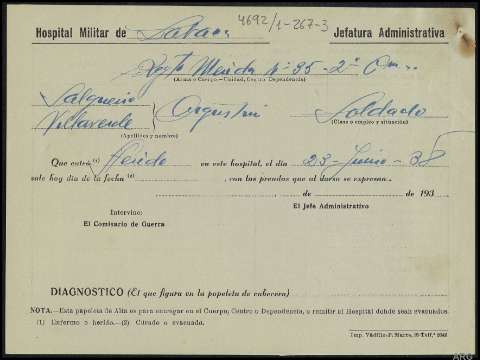 4692/1-267-3
Hospital Militar de Jefatura Administrativa
Regto Merida nº 35-2ª
(Arma o Cuerpo.—Unidad, Grupo, Dependencia)
Salgueiro
Villaverde Agustin Soldado
(Apellidos y nombre) (Clase o empleo y situación)
Que entró (1) Herido en este hospital, el día 23-Junio-38
sale hoy día de la fecha (2) , con las prendas que al dorso se expresan.
de de 193
Intervine: El Jefe Administrativo
El Comisario de Guerra
DIAGNOSTICO (El que figura en la papeleta de cabecera)
NOTA.—Esta papeleta de Alta es para entregar en el Cuerpo, Centro o Dependencia, o remitir al Hospital donde sean evacuados.
(1) Enfermo o herido.—(2) Curado o evacuado.
Imp. Vádillo-P.
ARG